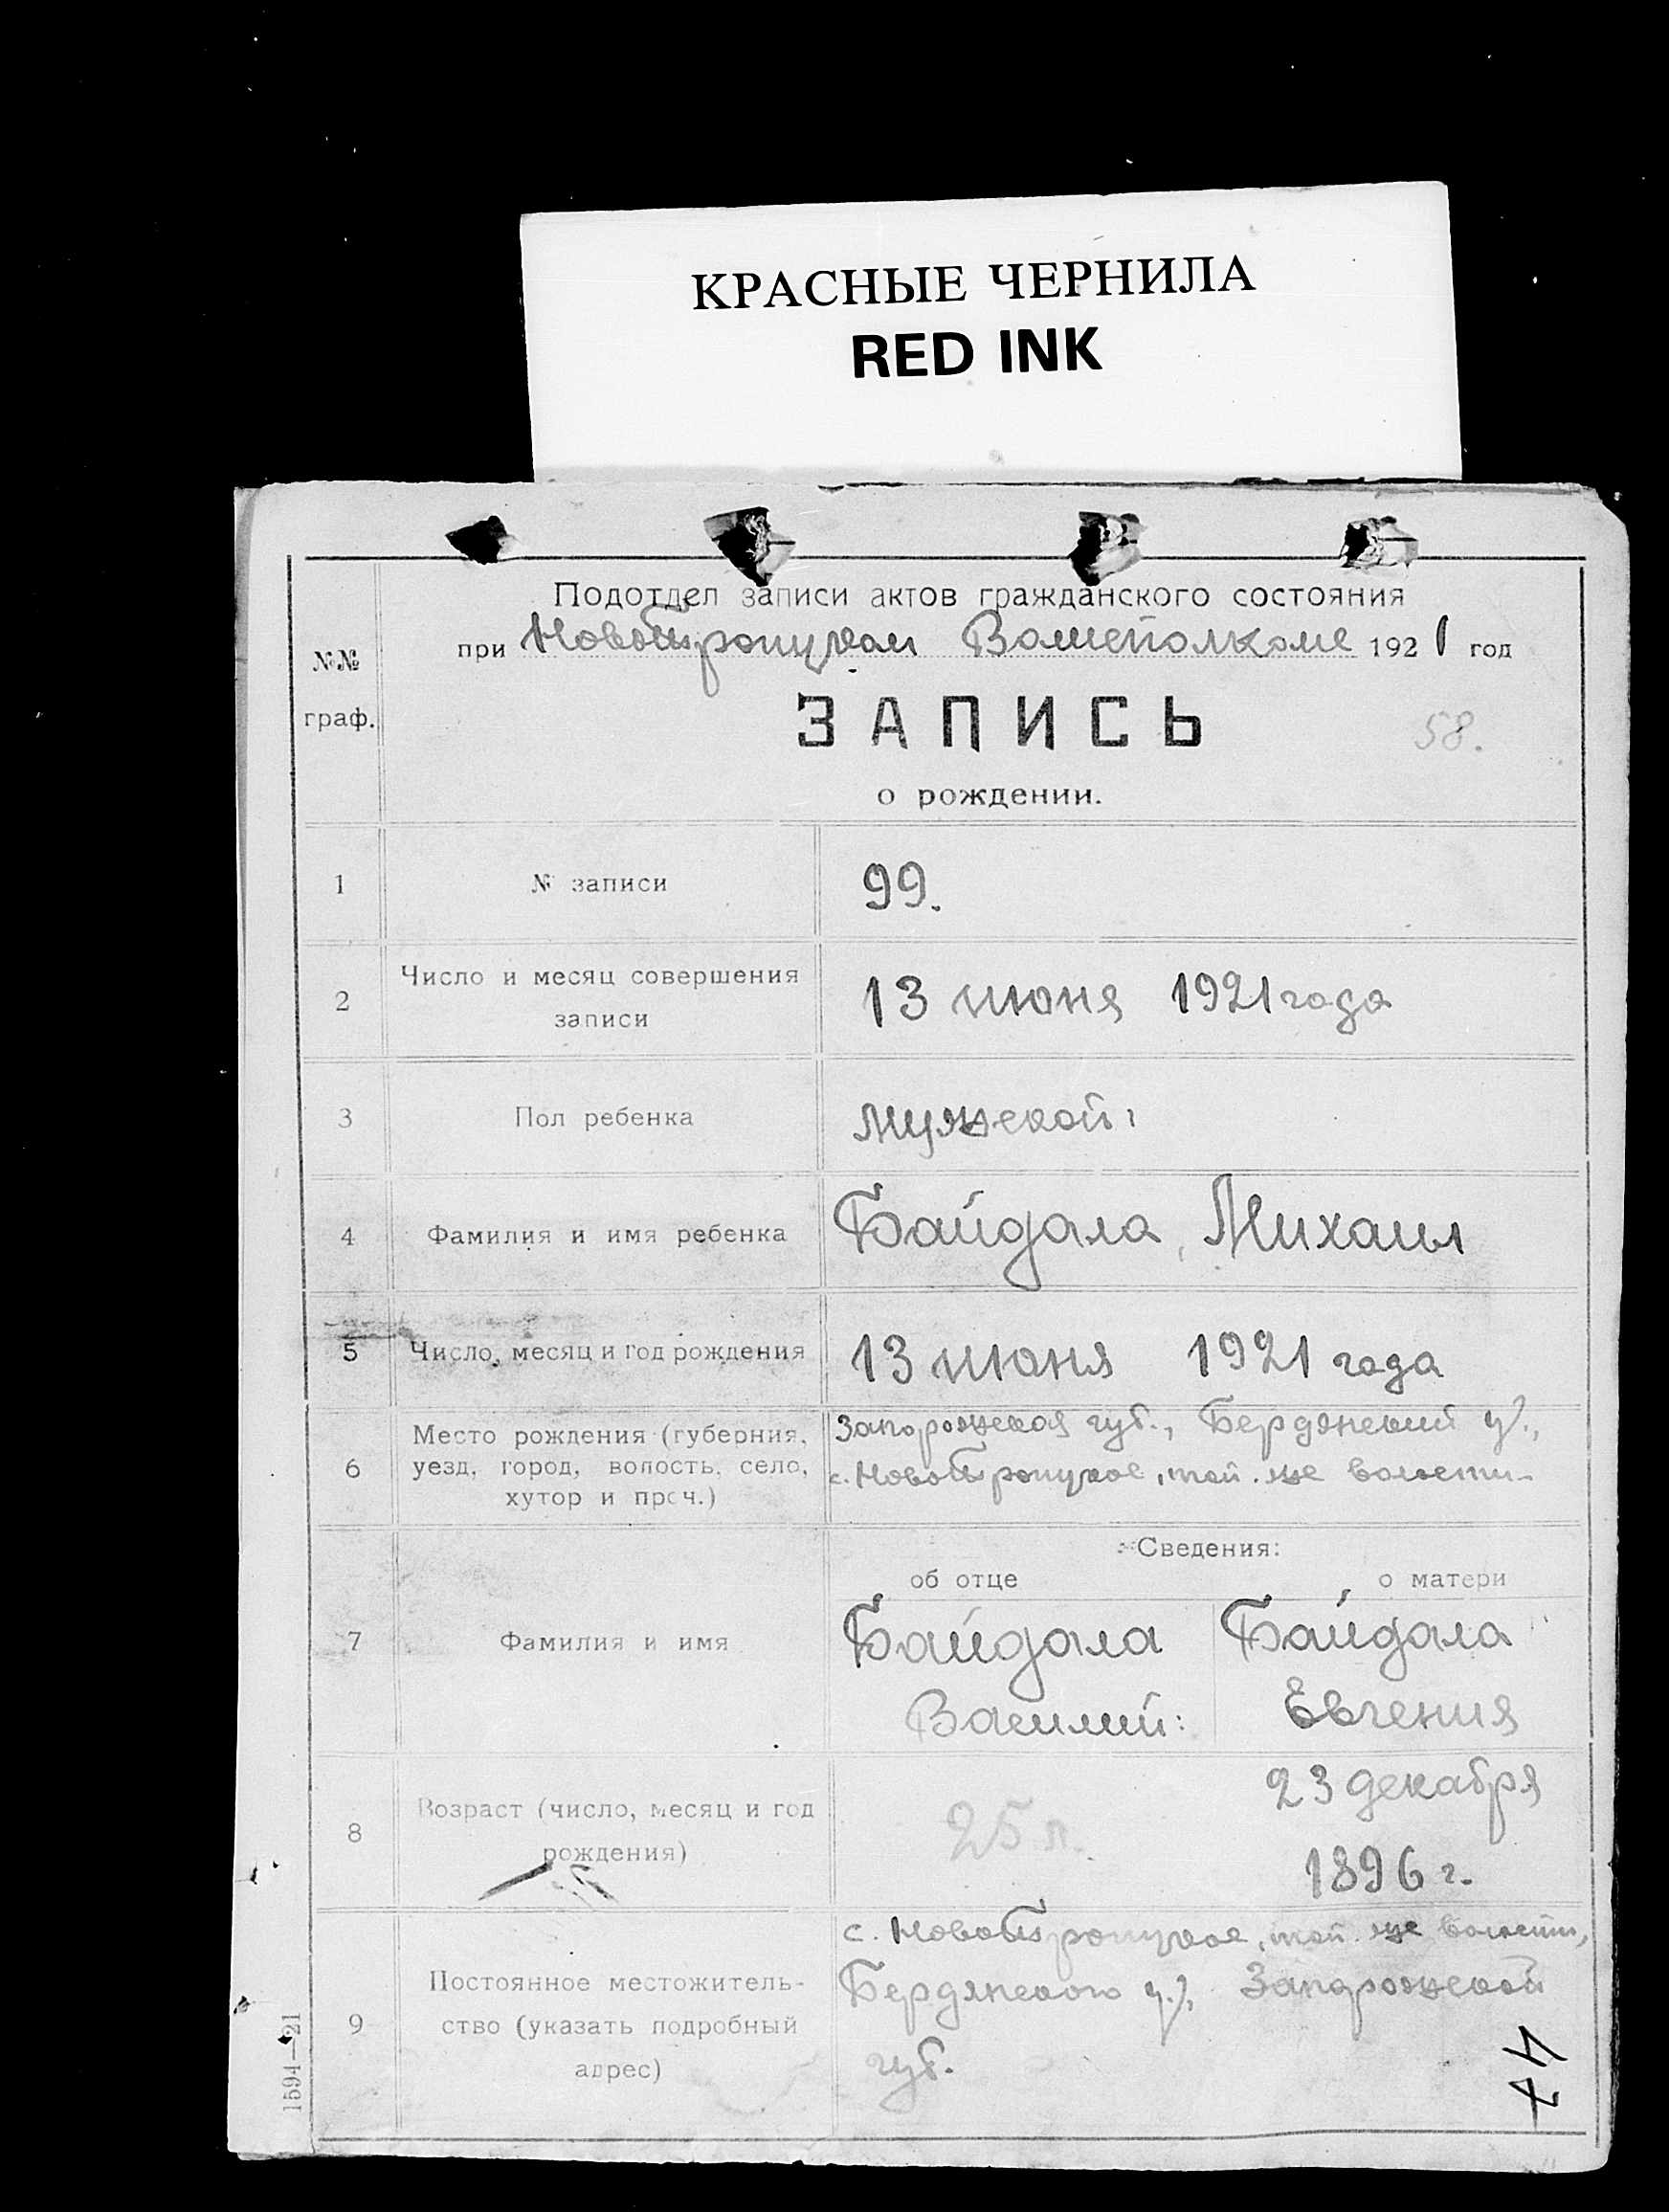 КРАСНЫЕ ЧЕРНИЛА
RED INK
Подотдел записи актов гражданского состояния
при Новотроицком Волисполкоме 1921 год
№№
граф.
ЗАПИСЬ
58.
о рождении.
1 № записи 99.
2 Число и месяц совершения
записи
13 июня 1921 года
3 Пол ребенка мужской
4 Фамилия и имя ребенка Байдала, Михаил
5 Число, месяц и год рождения 13 июня 1921 года
6 Место рождения (губерния,
уезд, город, волость, село,
хутор и проч.)
Запорожская губ., Бердянский у.,
с. Новотроицкое, той-же волости
Сведения:
об отце о матери
7 Фамилия и имя
Байдала Байдала
Василий: Евгения
8 Возраст (число, месяц и год
рождения)
25 л. 23 декабря
1896 г.
9 Постоянное местожитель-
ство (указать подробный
адрес)
с. Новотроицкое, той-же волости,
Бердянского у., Запорожской
губ.
1594—21
47